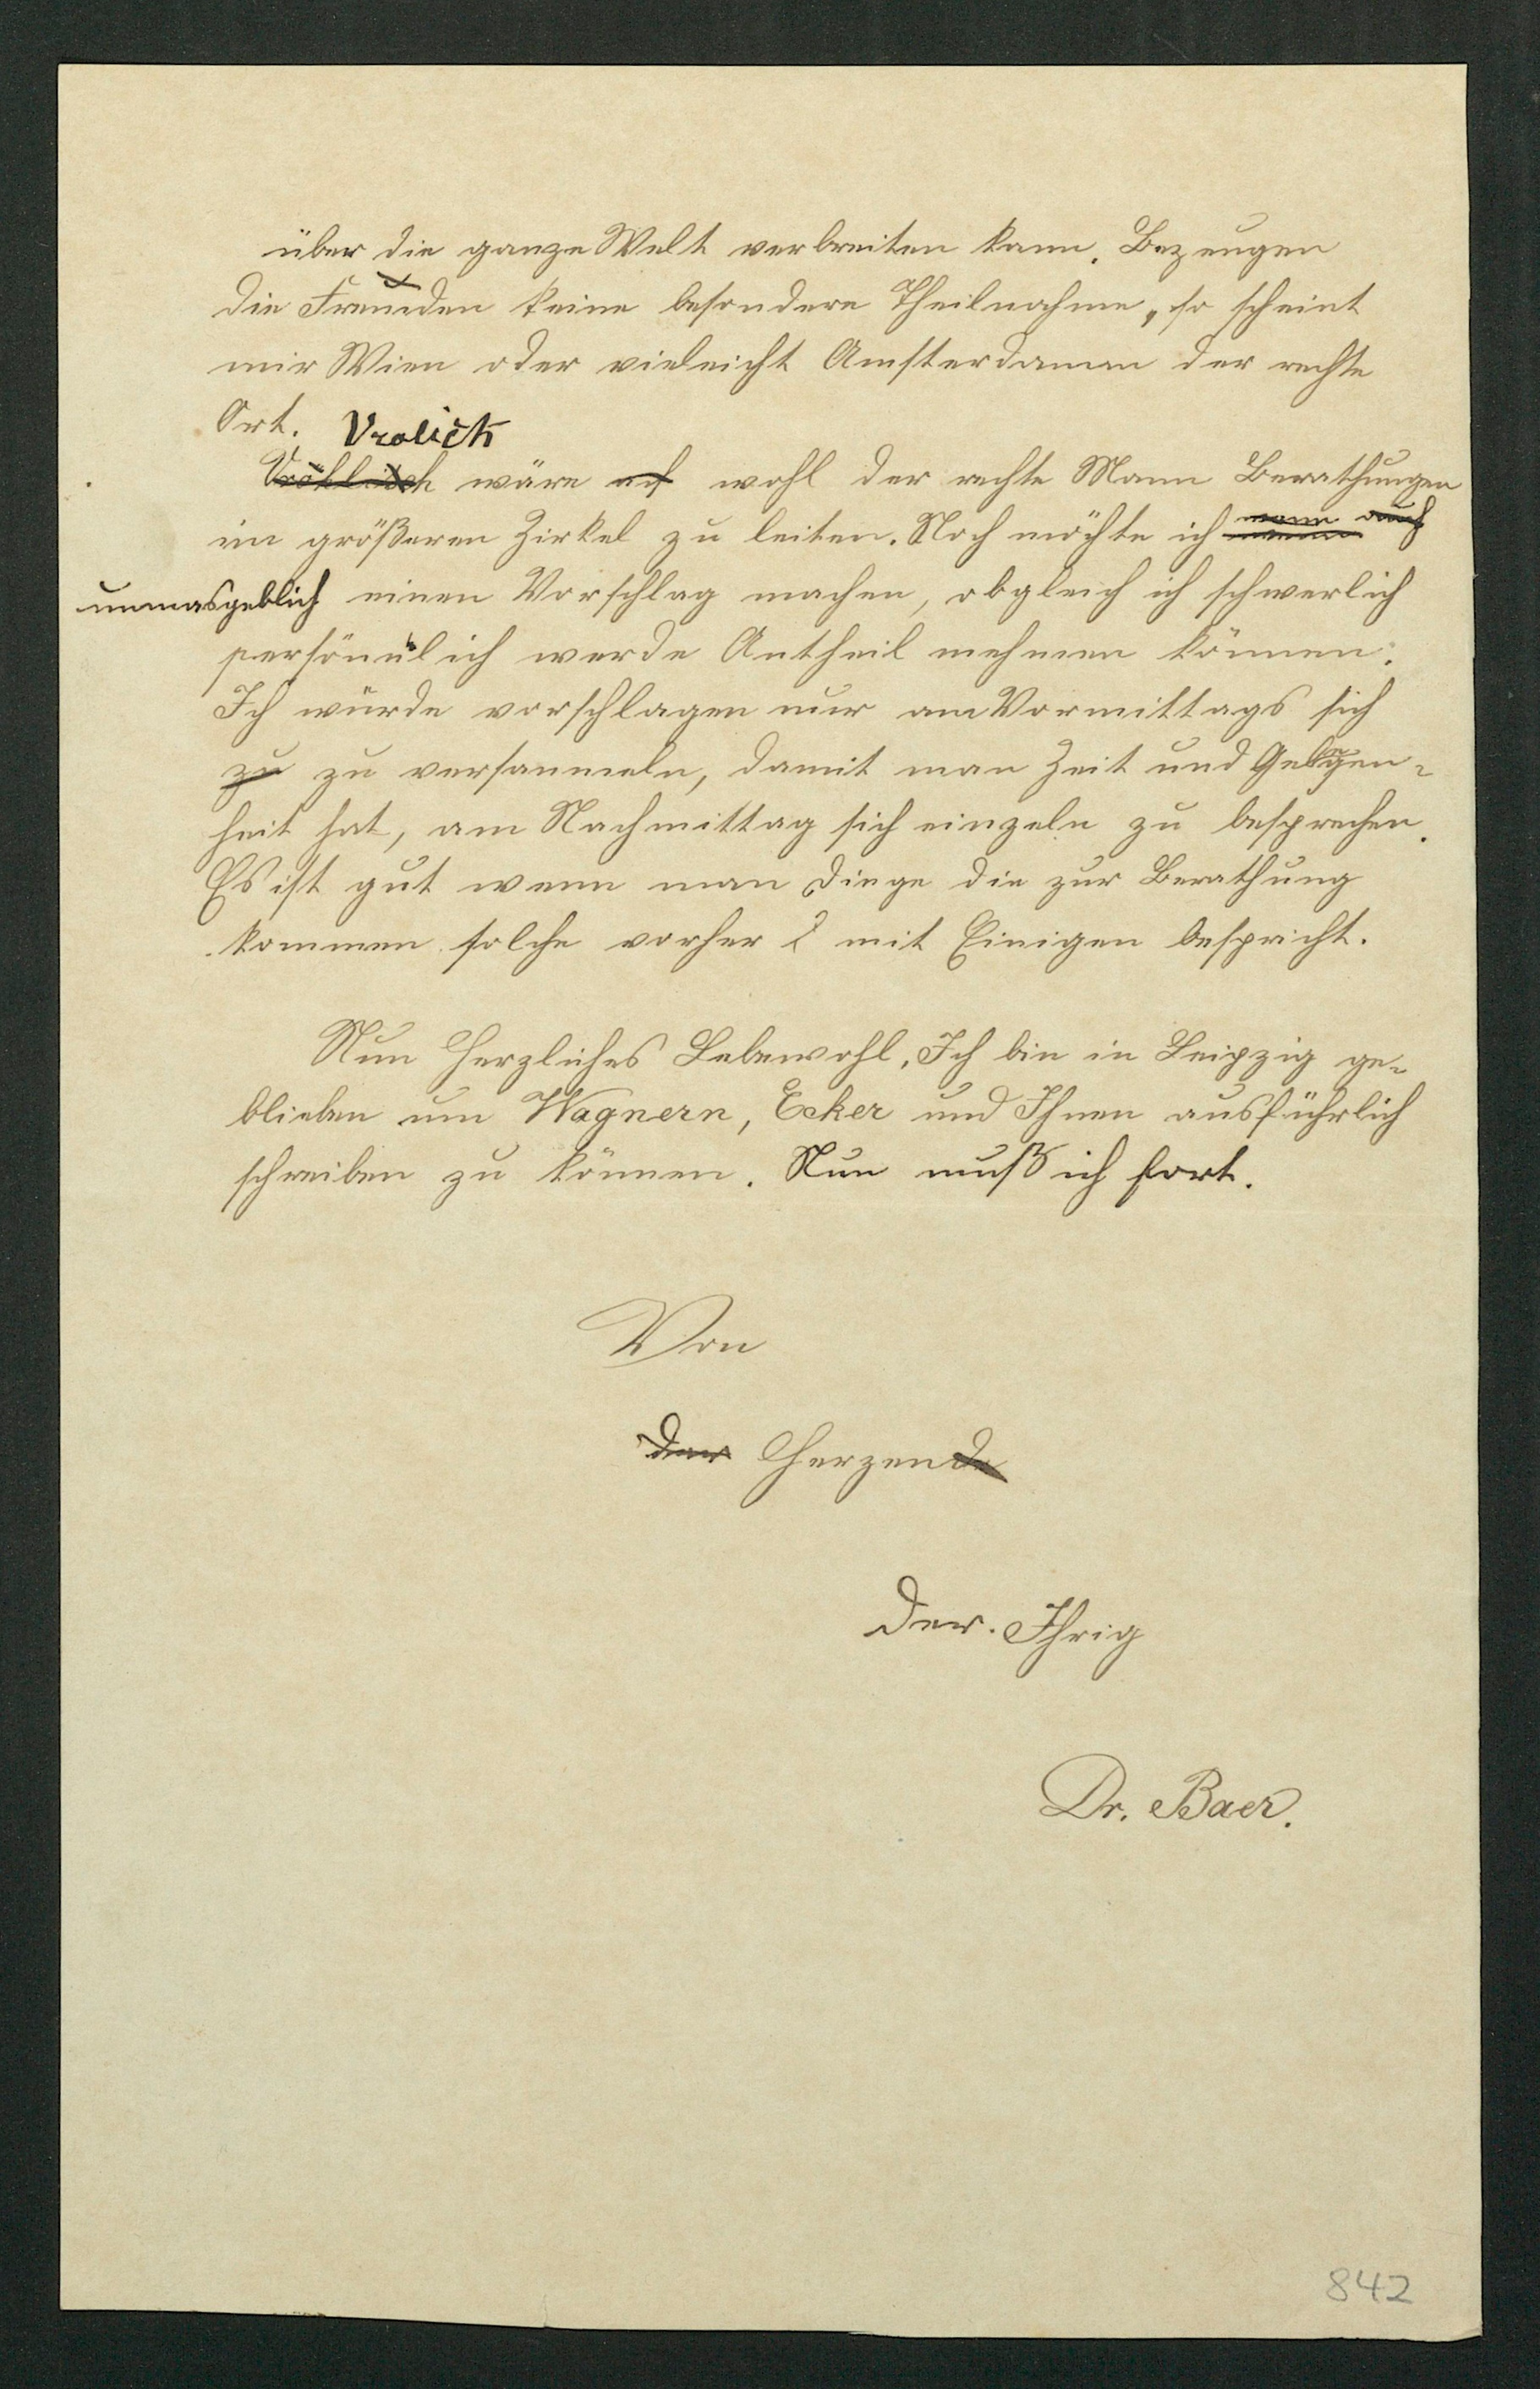 über die ganze Welt verbreiten kann. Bezeugen
die Fremden keine besondere Theilnahme, so scheint
mir Wien oder vieleicht Amsterdamm der rechte
Ort. Vrolick
wäre wohl der rechte Mann Berathungen
im größeren Zirkel zu leiten. Noch möchte ich auch
unmasgeblich einen Vorschlag machen, obgleich ich schwerlich
persönlich werde Antheil nehmen können.
Ich würde vorschlagen nur am Vormittags sich
zu zu versammeln, damit man Zeit und Gelegen-
heit hat, am Nachmittag sich einzeln zu besprechen.
Es ist gut wenn man Dinge die zur Berathung
kommen solche vorher mit Einigen bespricht.
Nun Herzliches Lebewohl. Ich bin in Leipzig ge-
blieben um Wagnern, Ecker und Ihnen ausführlich
schreiben zu können. Nun muß ich fort.
Von
der Herzende
Der. Ihrig
Dr. Baer.
842